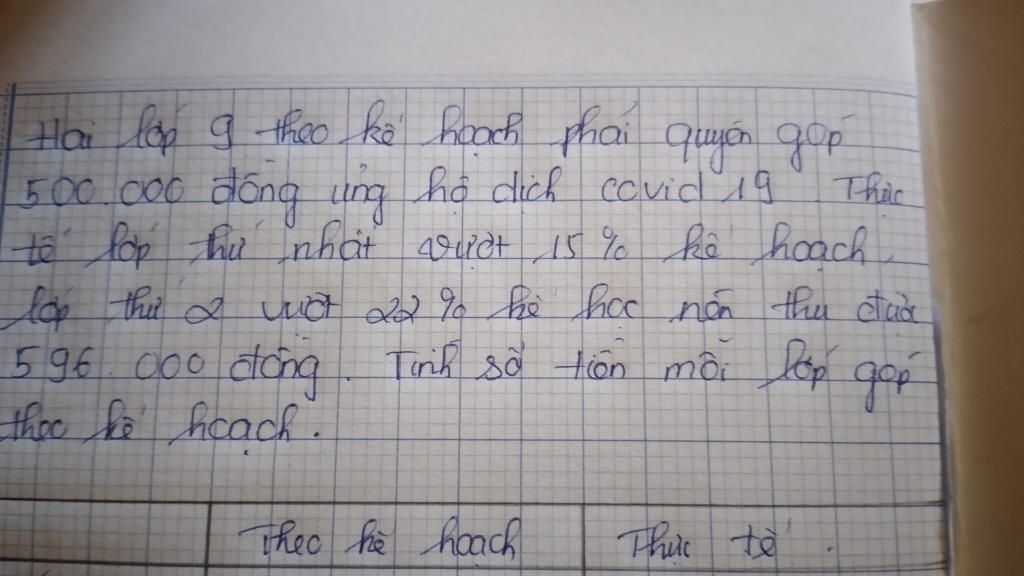 Hai lớp 9 theo kế hoạch phải quyên góp
500.000 đồng ủng hộ dịch covid 19 Thực
tế lớp thứ nhất vượt 15% kế hoạch,
lớp thứ 2 vượt 22% kế học nên thu được
596.000 đồng. Tính số tiền mỗi lớp góp
theo kế hoạch.
Theo kế hoạch Thực tế.